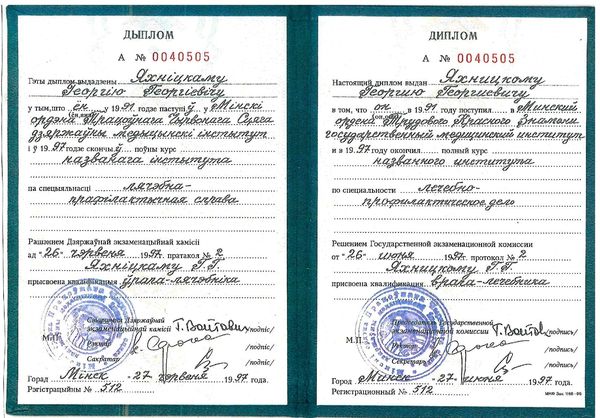 ДЫПЛОМ
А № 0040505
Гэты дыплом выдадзены Яхніцкаму
Георгію Георгіевічу
у тым, што ён
(он, яна)
у 1991 годзе паступіў у Мінскі
ордэна Працоўнага Чырвонага Сцяга
дзяржаўны медыцынскі інстытут
і ў 1997 годзе скончыў поўны курс
названага інстытута
па спецыяльнасці лячэбна-
прафілактычная справа
Рашэннем Дзяржаўнай экзаменацыйнай камісіі
ад "26" чэрвеня 1997 пратакол № 2
Яхніцкаму Г.Г.
прысвоена кваліфікацыя ўрача-лячэбніка
Старшыня Дзяржаўнай
экзаменацыйнай камісіі /подпіс/
М.П.
Рэктар /подпіс/
Сакратар /подпіс/
Горад Мінск 27 чэрвеня 1997 года.
Рэгістрацыйны № 512
ДИПЛОМ
А № 0040505
Настоящий диплом выдан Яхницкому
Георгию Георгиевичу
в том, что он
(он, она)
в 1991 году поступил в Минский
ордена Трудового Красного Знамени
государственный медицинский институт
и в 1997 году окончил полный курс
названного института
по специальности лечебно-
профилактическое дело
Решением Государственной экзаменационной комиссии
от "26" июня 1997 протокол № 2
Яхницкому Г.Г.
присвоена квалификация врача-лечебника
Председатель Государственной
экзаменационной комиссии /подпись/
М.П.
Ректор /подпись/
Секретарь /подпись/
Город Минск 27 июня 1997 года.
Регистрационный № 512